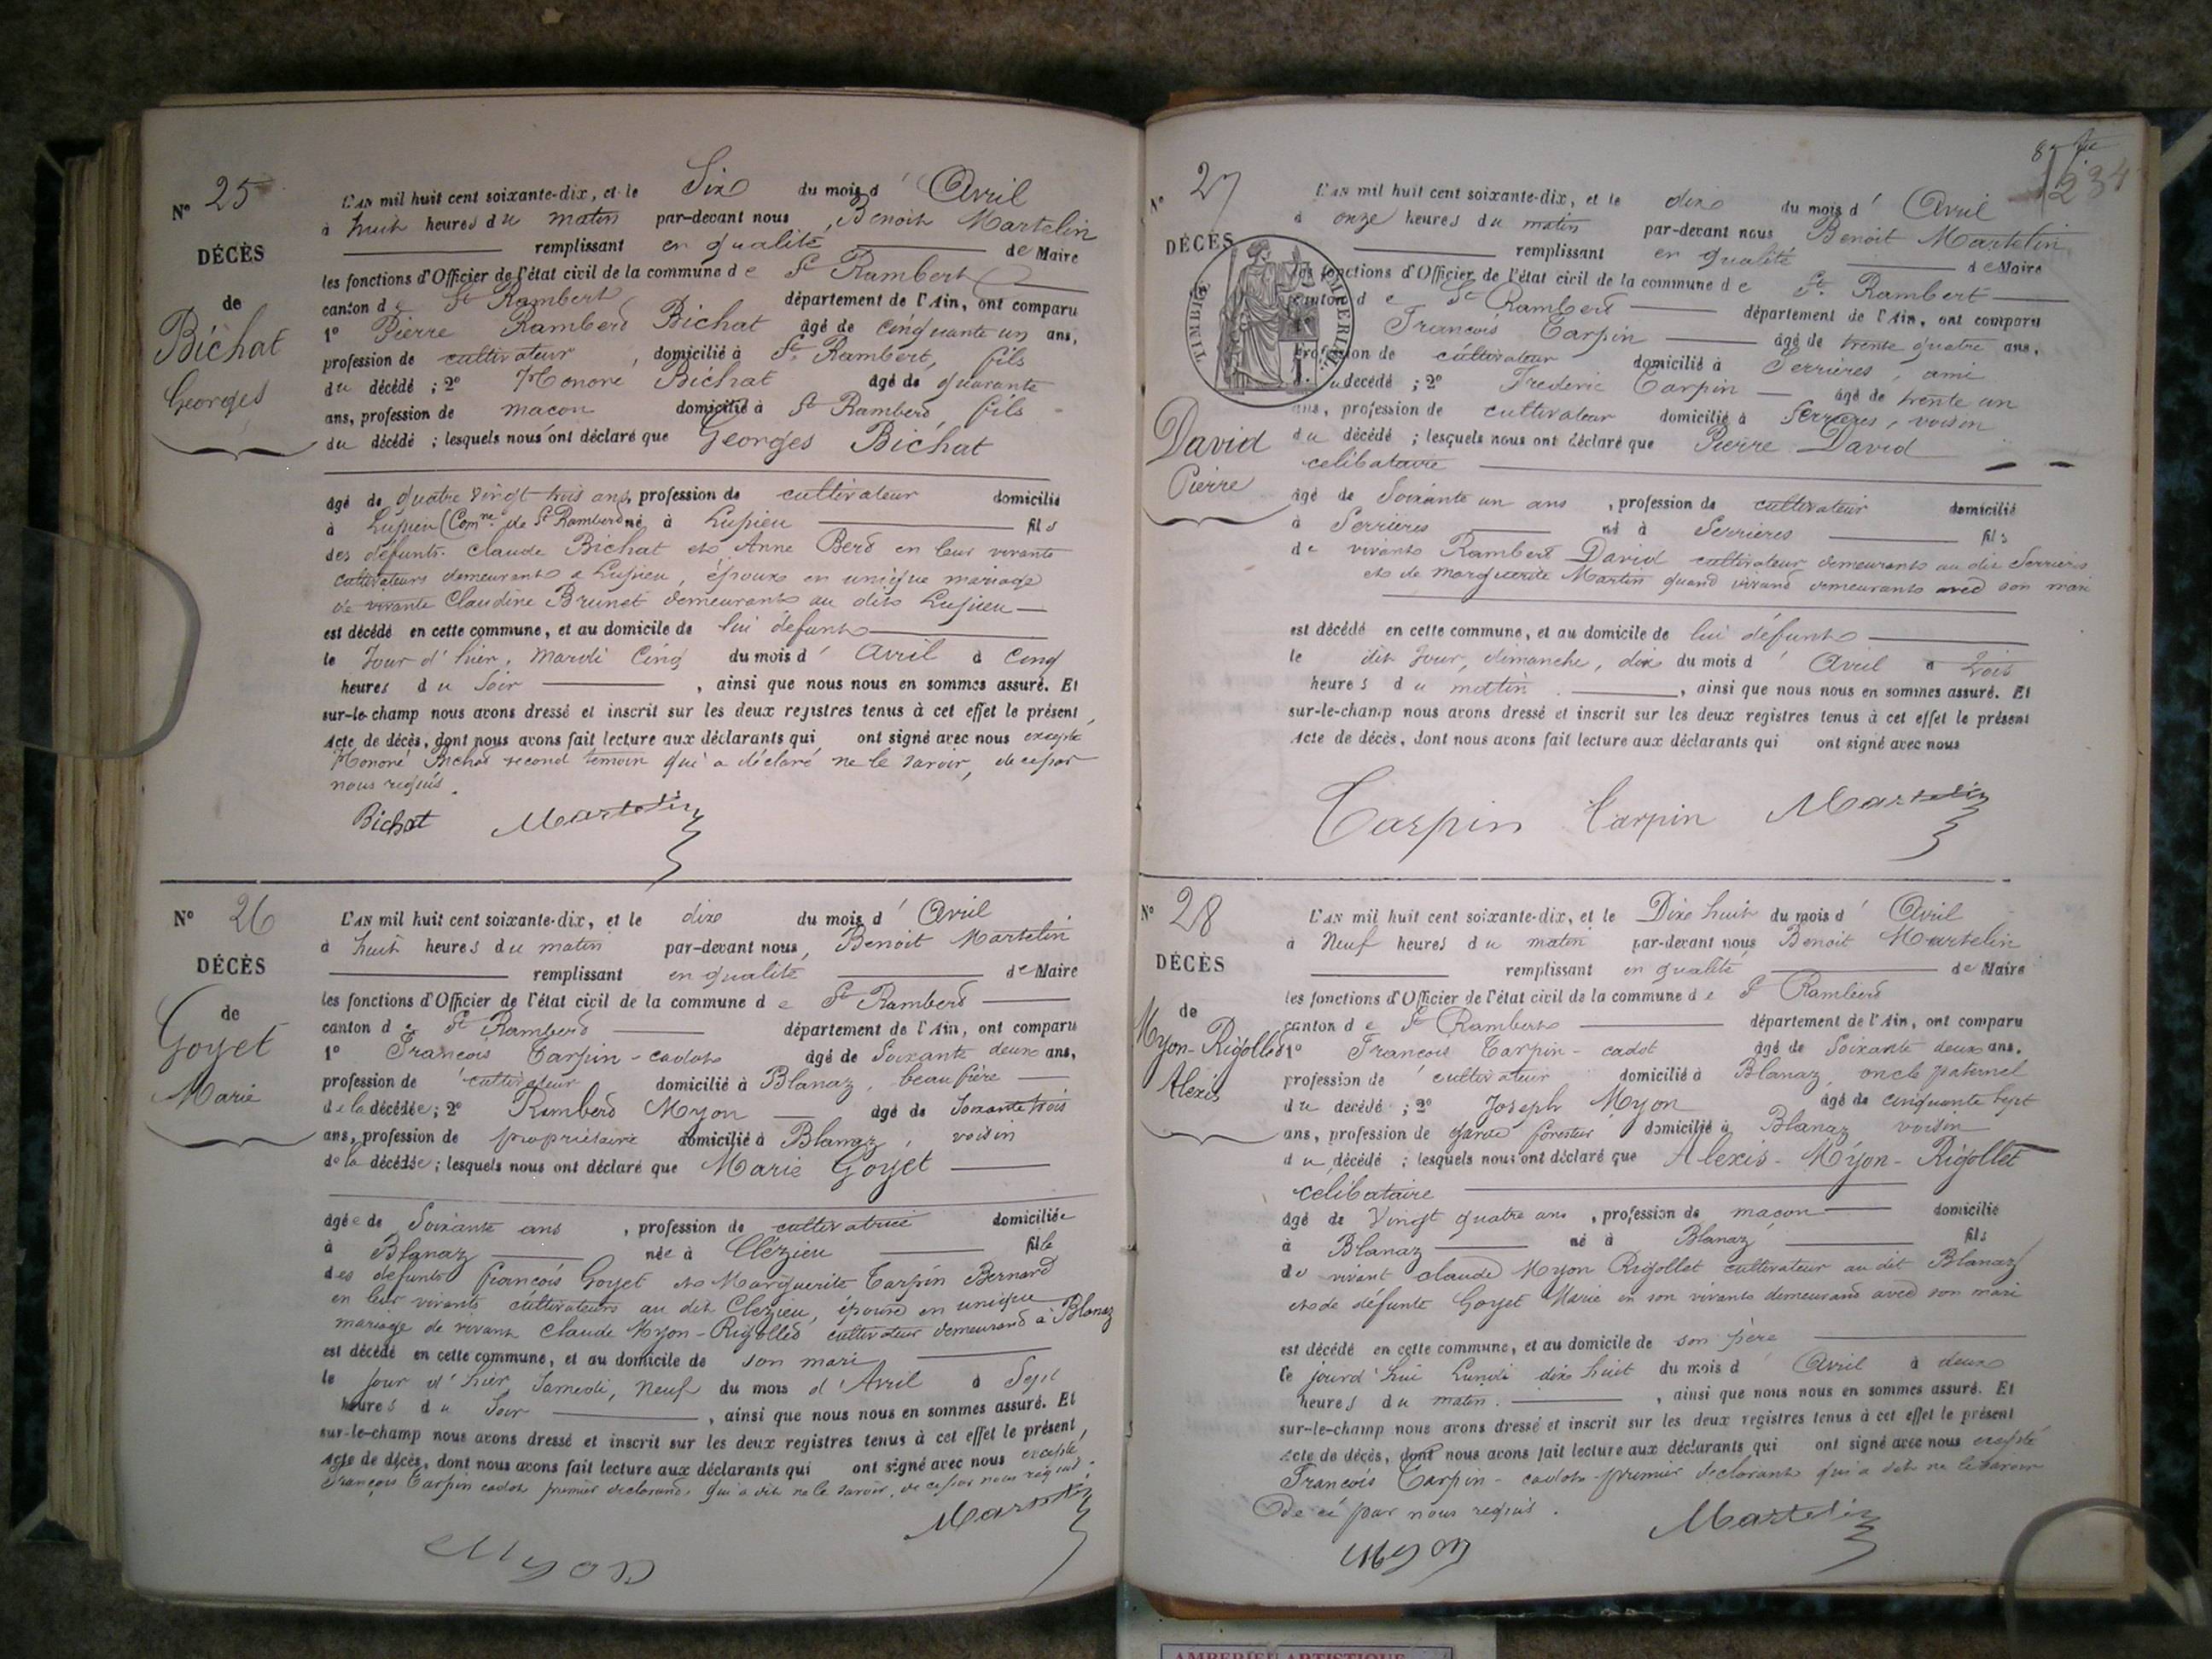 N° 25
DÉCÈS
de
Bichat
Georges
L'AN mil huit cent soixante-dix, et le Six du mois d' Avril
à huit heures du matin par-devant nous, Benoit Martelin
remplissant en qualité de Maire
les fonctions d'Officier de l'état civil de la commune de St Rambert
canton de St Rambert département de l'Ain, ont comparu
1° Pierre Rambert Bichat âgé de cinquante un ans,
profession de cultivateur, domicilié à St Rambert, fils
du décédé ; 2° Honoré Bichat âgé de quarante
ans, profession de macon domicilié à St Rambert, fils
du décédé ; lesquels nous ont déclaré que Georges Bichat
âgé de quatre vingt trois ans, profession de cultivateur domicilié
à Lupieu (Comne de St Rambert) né à Lupieu fils
des défunts Claude Bichat et Anne Berd en leur vivants
cultivateurs demeurants a Lupieu, époux en unique mariage
de vivante Claudine Brunet demeurant au dit Lupieu
est décédé en cette commune, et au domicile de lui défunt
le Jour d'hier, mardi Cinq du mois d' Avril à Cinq
heures du Soir, ainsi que nous nous en sommes assuré. Et
sur-le-champ nous avons dressé et inscrit sur les deux registres tenus à cet effet le présent
Acte de décès, dont nous avons fait lecture aux déclarants qui ont signé avec nous excepté
Honoré Bichat second temoin qui a déclaré ne le savoir, de ce par
nous requis.
Bichat Martelin
N° 26
DÉCÈS
de
Goyet
Marie
L'AN mil huit cent soixante-dix, et le dix du mois d' Avril
à huit heures du matin par-devant nous, Benoit Martelin
remplissant en qualité de Maire
les fonctions d'Officier de l'état civil de la commune de St Rambert
canton de St Rambert département de l'Ain, ont comparu
1° François Tarpin-cadot âgé de Soixante deux ans,
profession de cultivateur domicilié à Blanaz, beau frère
de la décédée ; 2° Rambert Myon âgé de Soixante trois
ans, profession de propriétaire domicilié à Blanaz, voisin
de la décédée ; lesquels nous ont déclaré que Marie Goyet
âgée de Soixante ans, profession de cultivatrice domiciliée
à Blanaz née à Clézieu fille
des defunts françois Goyet et Marguerite Tarpin Bernard
en leur vivants cultivateurs au dit Clezieu, épouse en unique
mariage de vivant Claude Myon-Rigollet cultivateur demeurant à Blanaz
est décédé en cette commune, et au domicile de son mari
le jour d'hier Samedi, Neuf du mois d'Avril à Sept
heures du Soir, ainsi que nous nous en sommes assuré. Et
sur-le-champ nous avons dressé et inscrit sur les deux registres tenus à cet effet le présent,
Acte de décès, dont nous avons fait lecture aux déclarants qui ont signé avec nous excepté
François Tarpin cadot premier declarant, qui a dit ne le savoir, de ce par nous requis.
Martelin
Myon
8e
234
N° 27
DÉCÈS
TIMBRE IMPERIAL
David
Pierre
L'AN mil huit cent soixante-dix, et le dix du mois d' Avril
à onze heures du matin par-devant nous Benoit Martelin
remplissant en qualité de Maire
les fonctions d'Officier de l'état civil de la commune de St. Rambert
canton de St Rambert département de l'Ain, ont comparu
François Carpin âgé de trente quatre ans,
profession de cultivateur domicilié à Serrières, ami
du décédé ; 2° Frederic Carpin âgé de trente un
ans, profession de cultivateur domicilié à Serrières, voisin
du décédé ; lesquels nous ont déclaré que Pierre David
celibataire
âgé de Soixante un ans, profession de cultivateur domicilié
à Serrieres né à Serrieres fils
de vivant Rambert David cultivateur demeurant au dit Serrieres
et de Marguerite Martin quand vivant demeurant avec son mari
est décédé en cette commune, et au domicile de lui défunt
le dit Jour, dimanche, dix du mois d' Avril à trois
heures du matin, ainsi que nous nous en sommes assuré. Et
sur-le-champ nous avons dressé et inscrit sur les deux registres tenus à cet effet le présent
Acte de décès, dont nous avons fait lecture aux déclarants qui ont signé avec nous
Carpin Carpin Martelin
N° 28
DÉCÈS
de
Myon-Rigollet
Alexis
L'AN mil huit cent soixante-dix, et le Dix huit du mois d' Avril
à Neuf heures du matin par-devant nous Benoit Martelin
remplissant en qualité de Maire
les fonctions d'Officier de l'état civil de la commune de St Rambert
canton de St Rambert département de l'Ain, ont comparu
1° François Tarpin-cadot âgé de Soixante deux ans,
profession de cultivateur domicilié à Blanaz, oncle paternel
du décédé ; 2° Joseph Myon âgé de cinquante sept
ans, profession de garde forestier domicilié à Blanaz voisin
du décédé ; lesquels nous ont déclaré que Alexis-Myon-Rigollet
celibataire
âgé de Vingt quatre ans, profession de maçon domicilié
à Blanaz né à Blanaz fils
de vivant claude Myon Rigollet cultivateur au dit Blanaz
et de défunte Goyet Marie en son vivant demeurant avec son mari
est décédé en cette commune, et au domicile de son père
le jourd'hui Lundi dix huit du mois d' Avril à deux
heures du matin, ainsi que nous nous en sommes assuré. Et
sur-le-champ nous avons dressé et inscrit sur les deux registres tenus à cet effet le présent
Acte de décès, dont nous avons fait lecture aux déclarants qui ont signé avec nous excepté
François Tarpin-cadot-premier declarant qui a dit ne le savoir
de ce par nous requis.
Martelin
Myon
AMBERIEU ARTISTIQUE